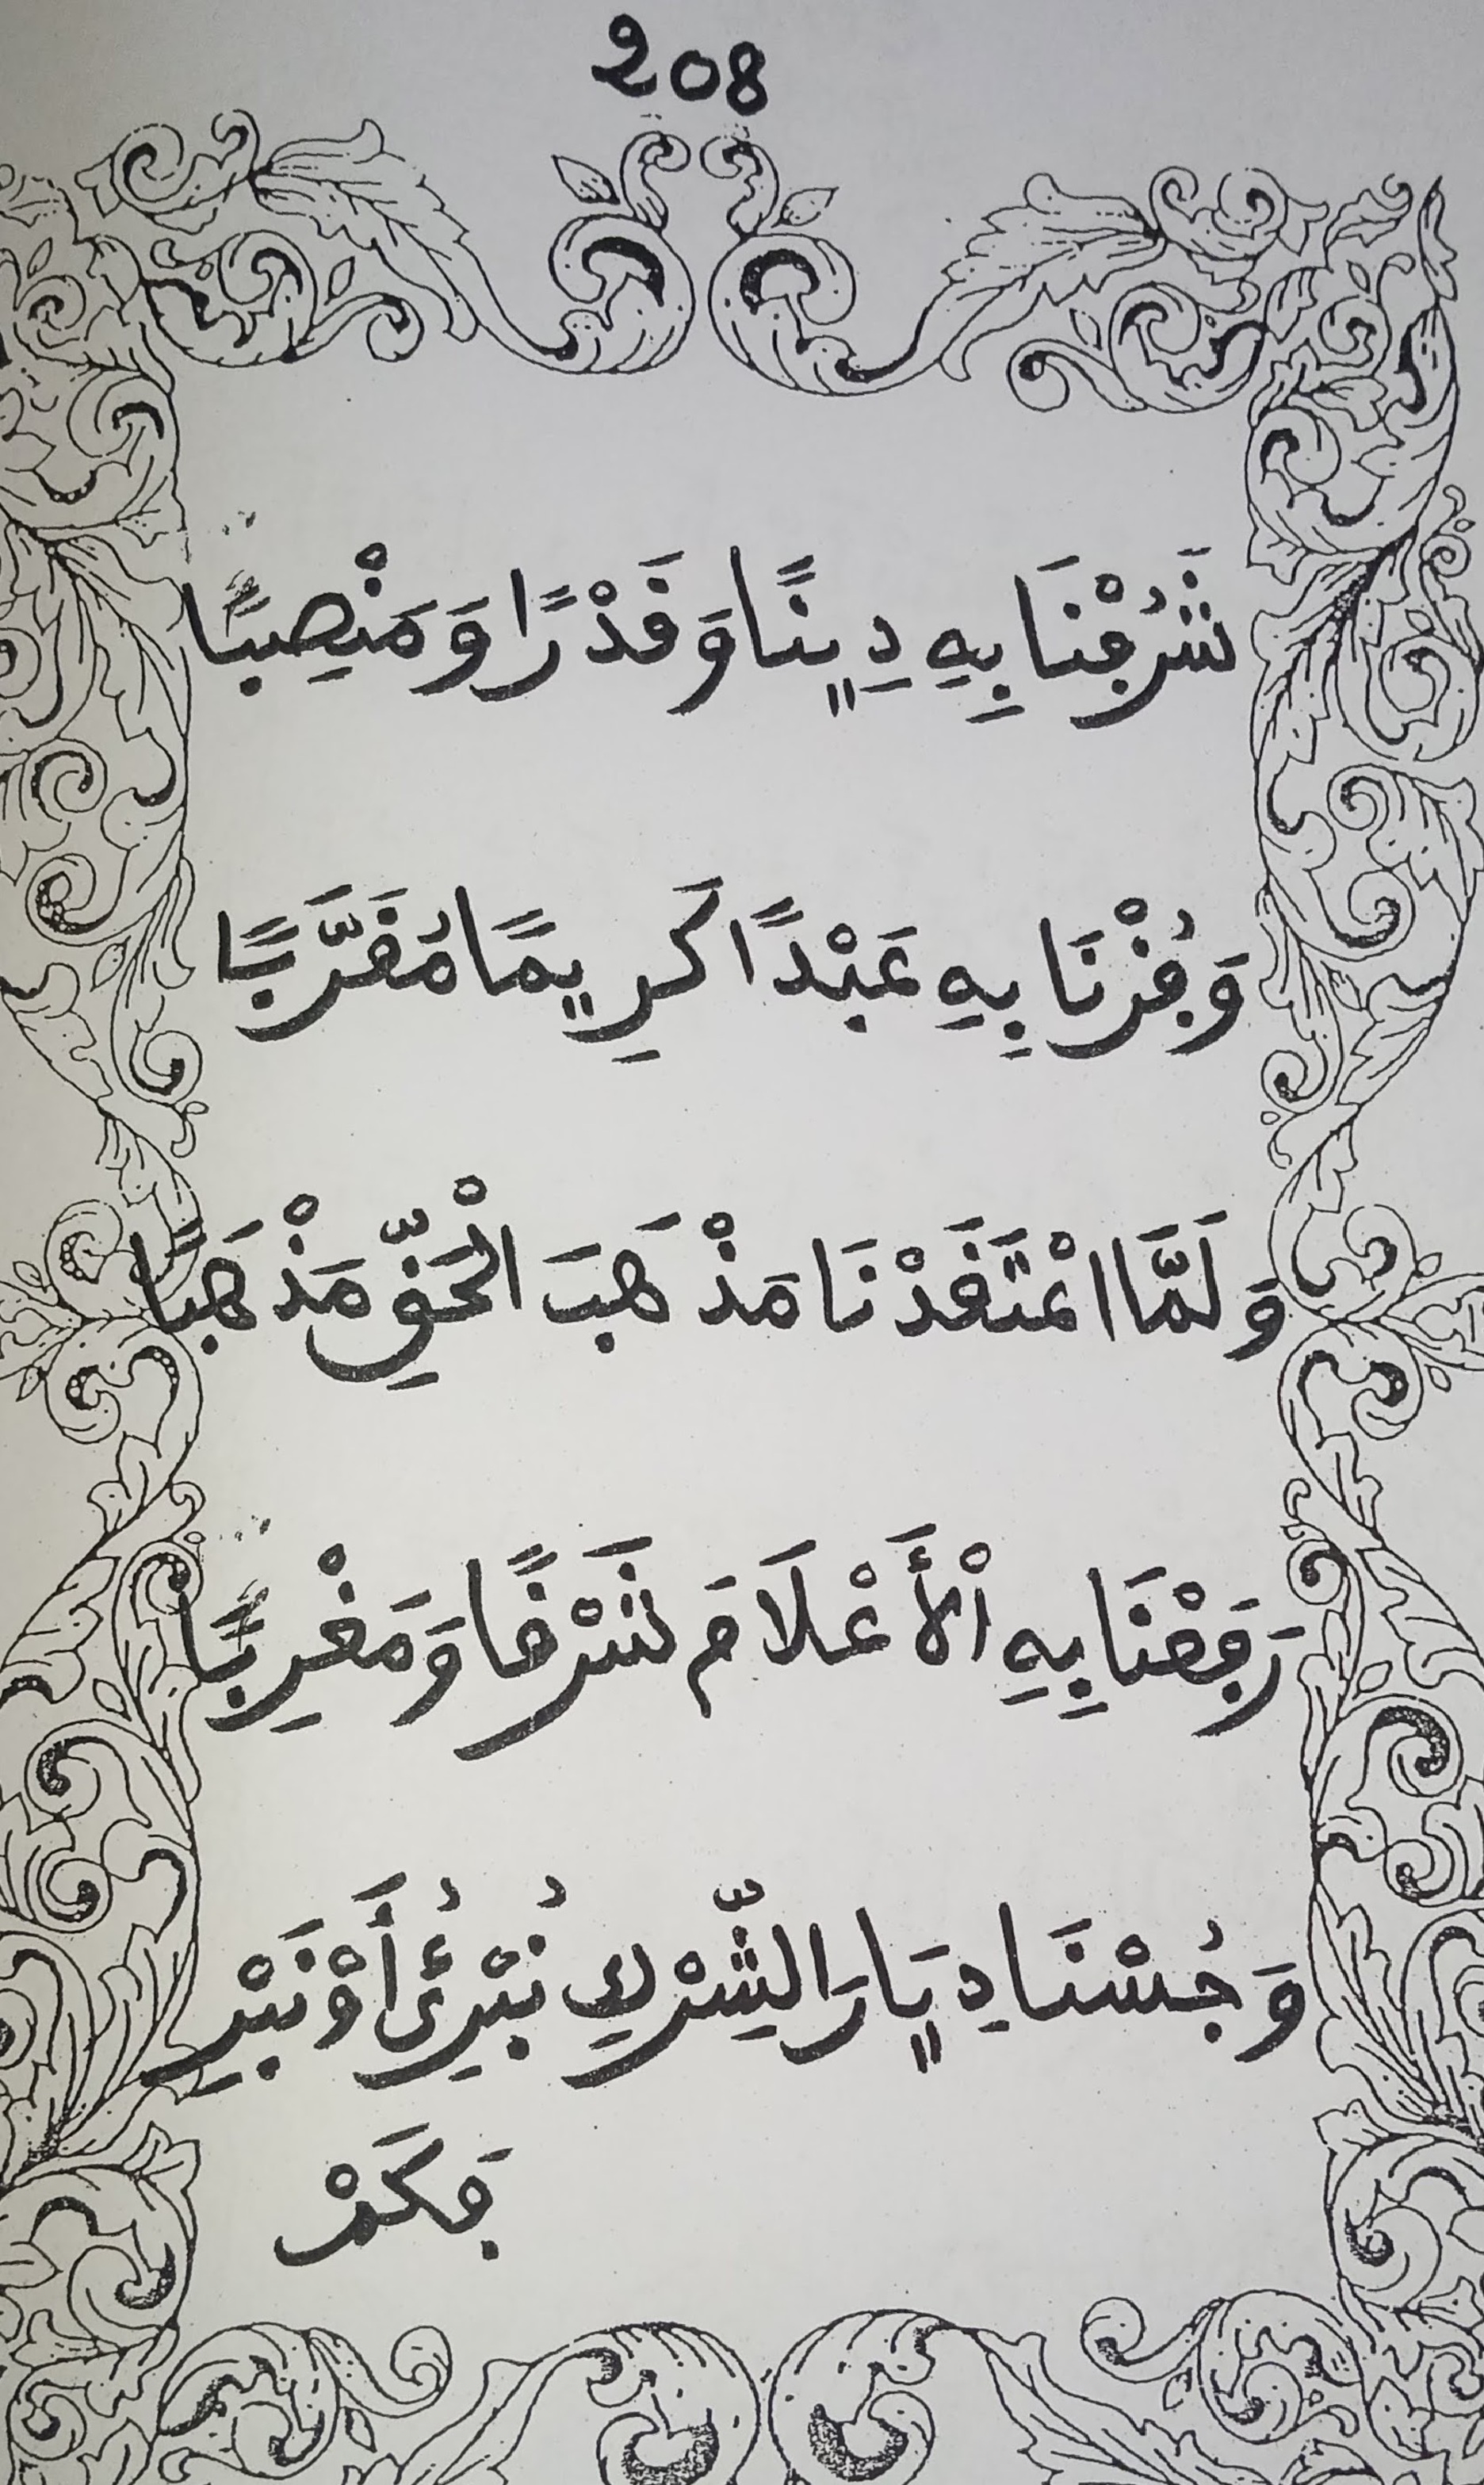 208
شَرُفْنَا بِهِ دِينًا وَقَدْرًا وَمَنْصِبًا
وَفُزْنَا بِهِ عَبْدًا كَرِيمًا مُقَرَّبًا
وَلَمَّا اعْتَقَدْنَا مَذْهَبَ الْحَقِّ مَذْهَبًا
رَفَعْنَا بِهِ الْأَعْلَامَ شَرْقًا وَمَغْرِبًا
وَجُسْنَا دِيَارَ الشِّرْكِ نُبْرِئُ أَوْ نَبْرِ
فَكَمْ